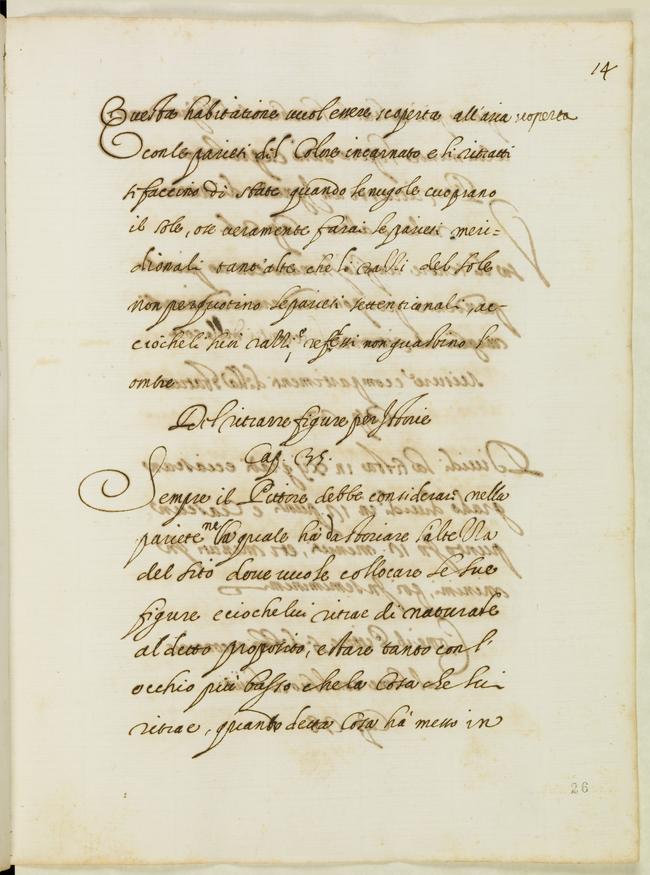 14
Questa habitatione vuol essere scoperta all'aria scoperta
con le parieti del Colore incarnato e li ritratti
si faccino di state quando le nugole cuoprano
il sole, o veramente farai le parieti meri=
dionali tant'alte che li razzi del sole
non perquotino le parieti settentrionali, ac=
ciocheli suoi razzi e reflessi non guastino l'
ombre
Del ritrarre figure per Istorie
Cap. 35.
Sempre il Pittore debbe considerari nella
pariete ne la quale ha da storiare l'altezza
del sito dove vuole collocare le sue
figure e cioche lui ritrae di naturale
al detto proposito, e stare tanto con l'
occhio più basso che la Cosa che lui
ritrae, quanto detta Cosa ha messo in
26